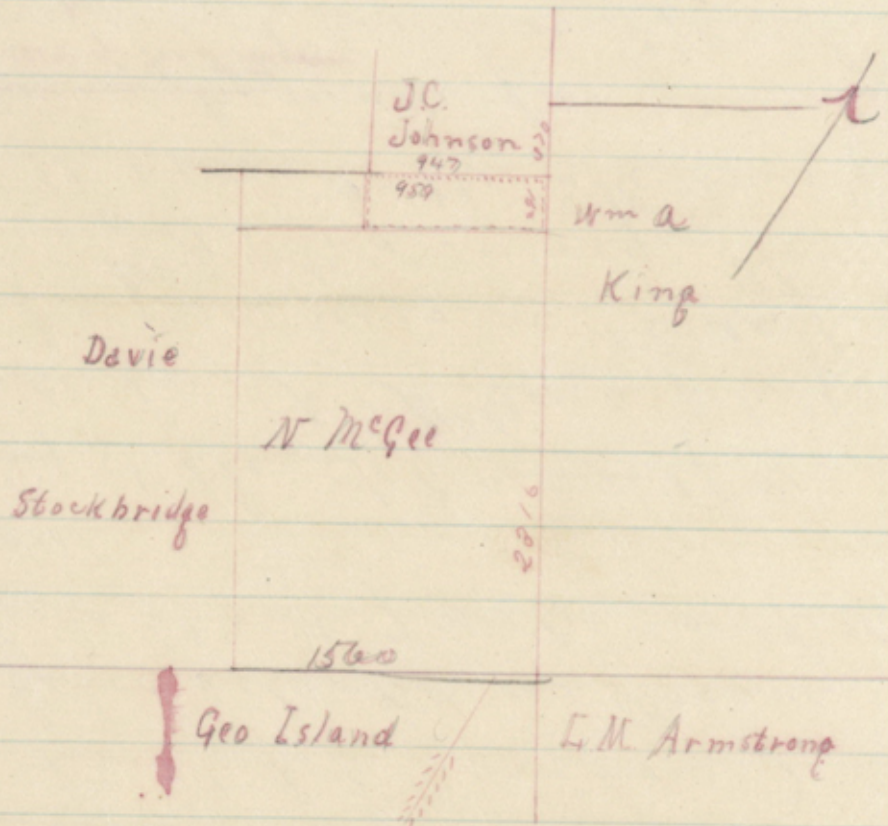 J.C.
Johnson
947
Wm a
King
Davie
N McGee
Stockbridge
1560
Geo Island
Armstrong